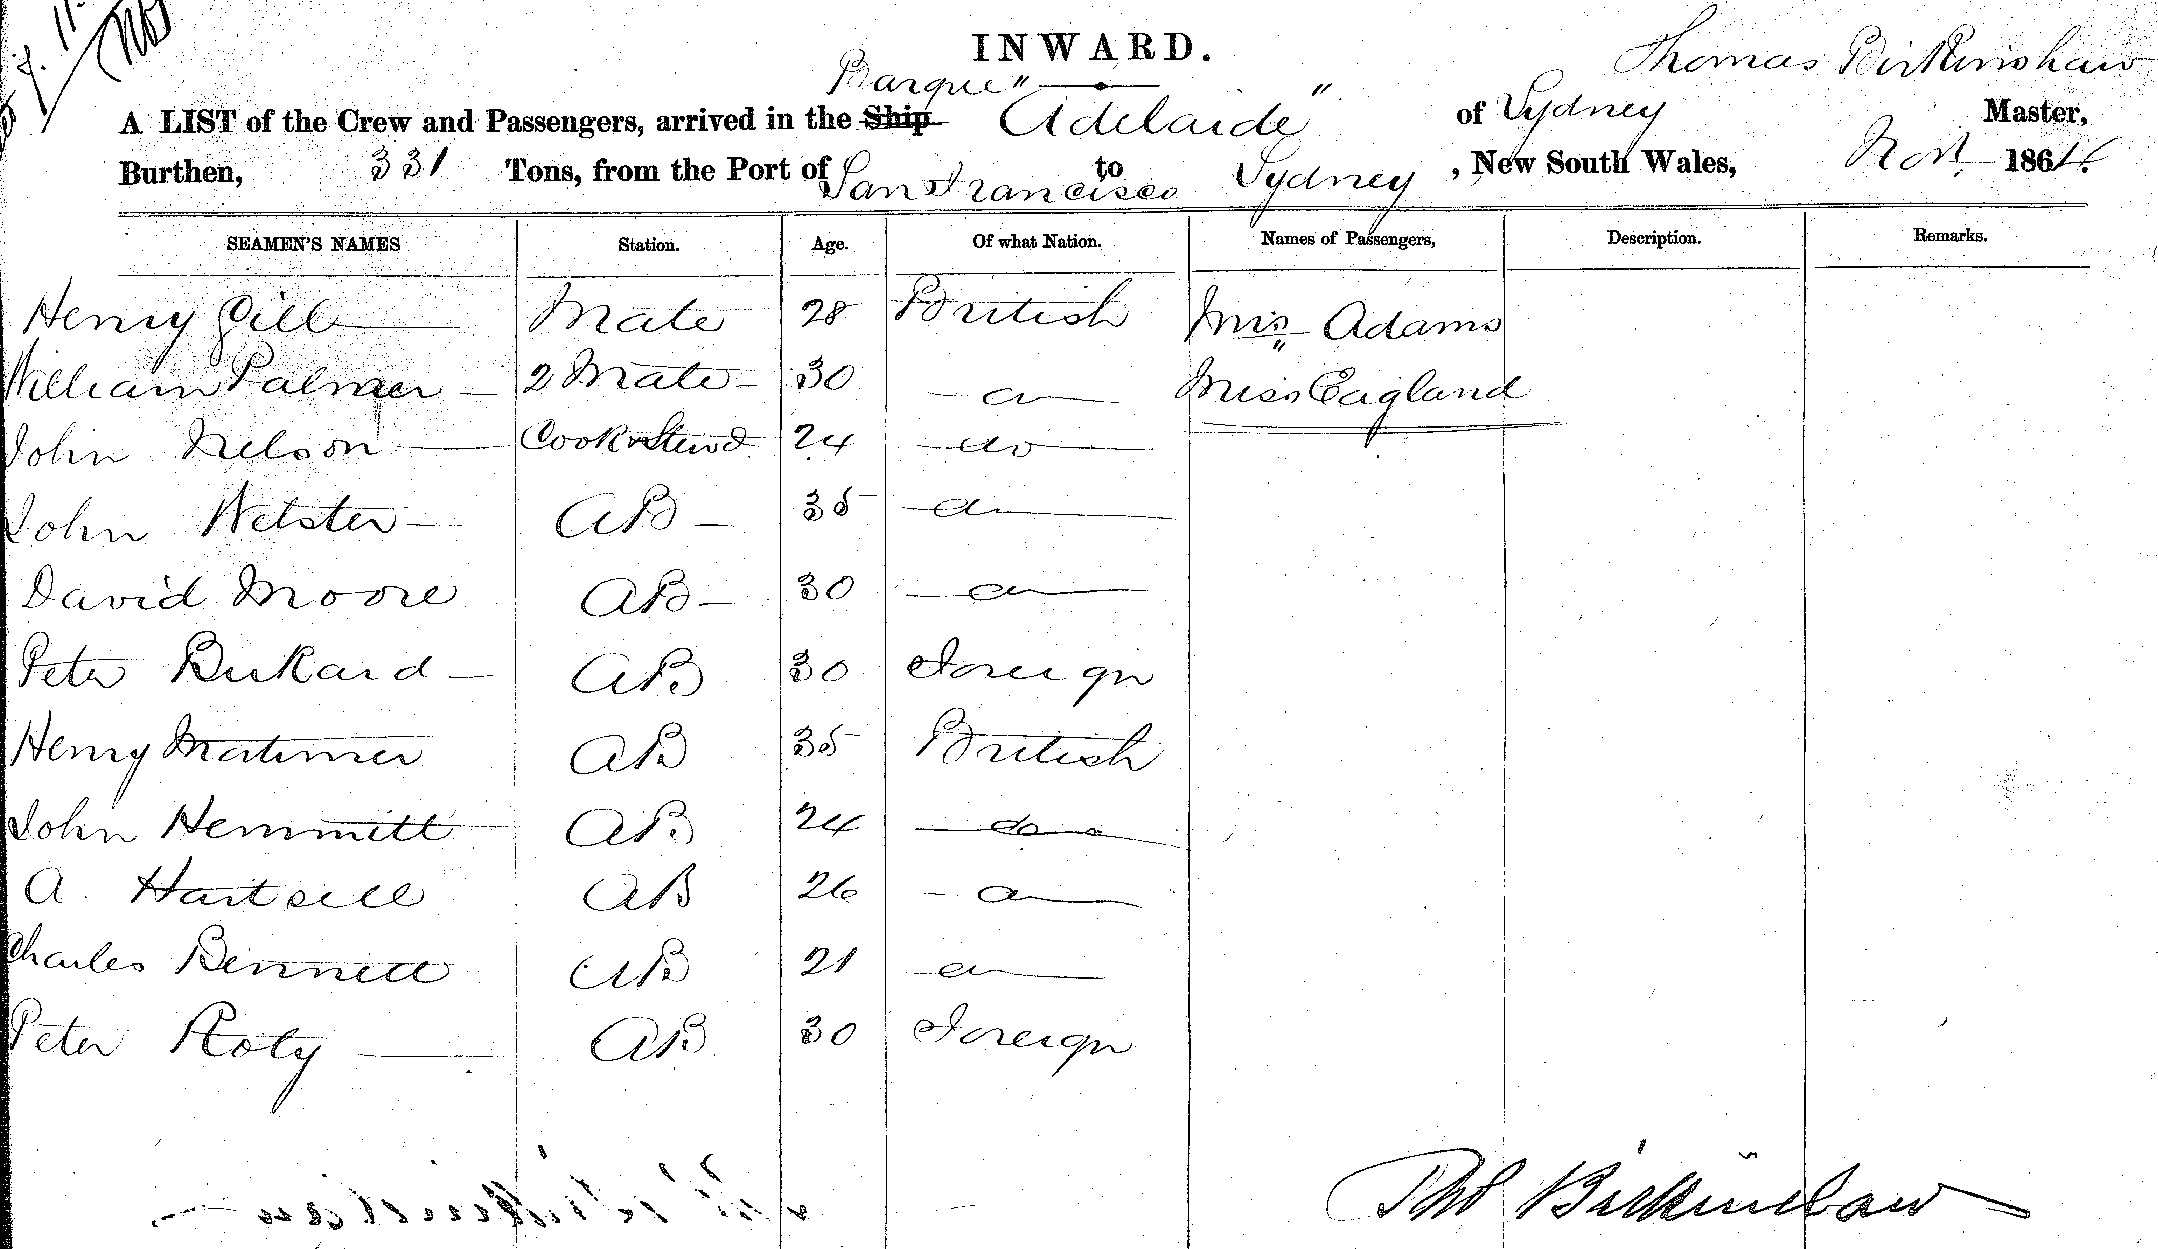 INWARD.
Thomas Birkinshaw
Barque
A LIST of the Crew and Passengers, arrived in the Ship "Adelaide" of Sydney Master,
Burthen, 331 Tons, from the Port of San Francisco to Sydney, New South Wales, Nov 1864.
SEAMEN'S NAMES Station. Age. Of what Nation. Names of Passengers, Description. Remarks.
Henry Gill Mate 28 British Mrs Adams
William Palmer 2 Mate 30 do Miss Eagland
John Nelson Cook & Stewd 24 do
John Webster AB 35 do
David Moore AB 30 do
Peter AB 30 Foreign
Henry AB 35 British
John Hemmitt AB 24 do
A. Hartsell AB 26 do
Charles Bennett AB 21 do
Peter Roty AB 30 Foreign
Thos Birkinshaw